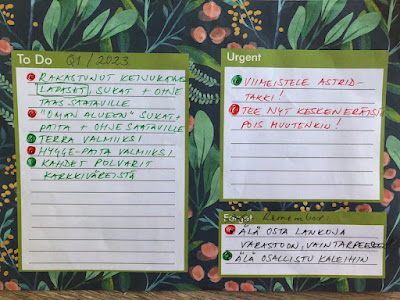 To Do Q1/2023
RAKASTUNUT KEINUKAINEN
LAPASET, SUKAT + OHJE
TAAS SAATAVILLE
"OMAN ALUEEN" SUKAT +
PAITA + OHJE SAATAVILLE
TERRA VALMIIKSI
HYGGE-PAITA VALMIIKSI
KAHDET POLVARIT
KARKKIVÄREISTÄ
Urgent
VIIMEISTELE ASTRID-
TAKKI!
TEE NYT KESKENERÄISIÄ
POIS MUUTENKIN!
Remember
ÄLÄ OSTA LANKOJA
VARASTOON, VAIN TARPEESEEN
ÄLÄ OSALLISTU KALEIHIN